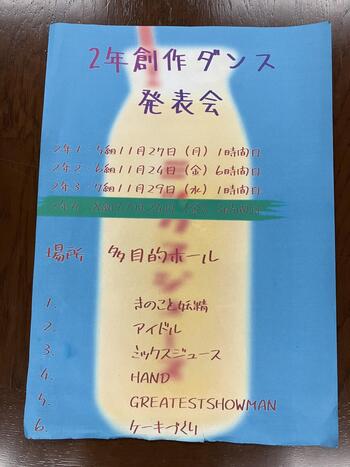 2年創作ダンス
発表会
2年1.5組11月27日(月)1時間目
2年2.6組11月24日(金)6時間目
2年3.7組11月29日(水)1時間目
場所 多目的ホール
1. きのこと妖精
2. アイドル
3. ミックスジュース
4. HAND
5. GREATESTSHOWMAN
6. ケーキづくり